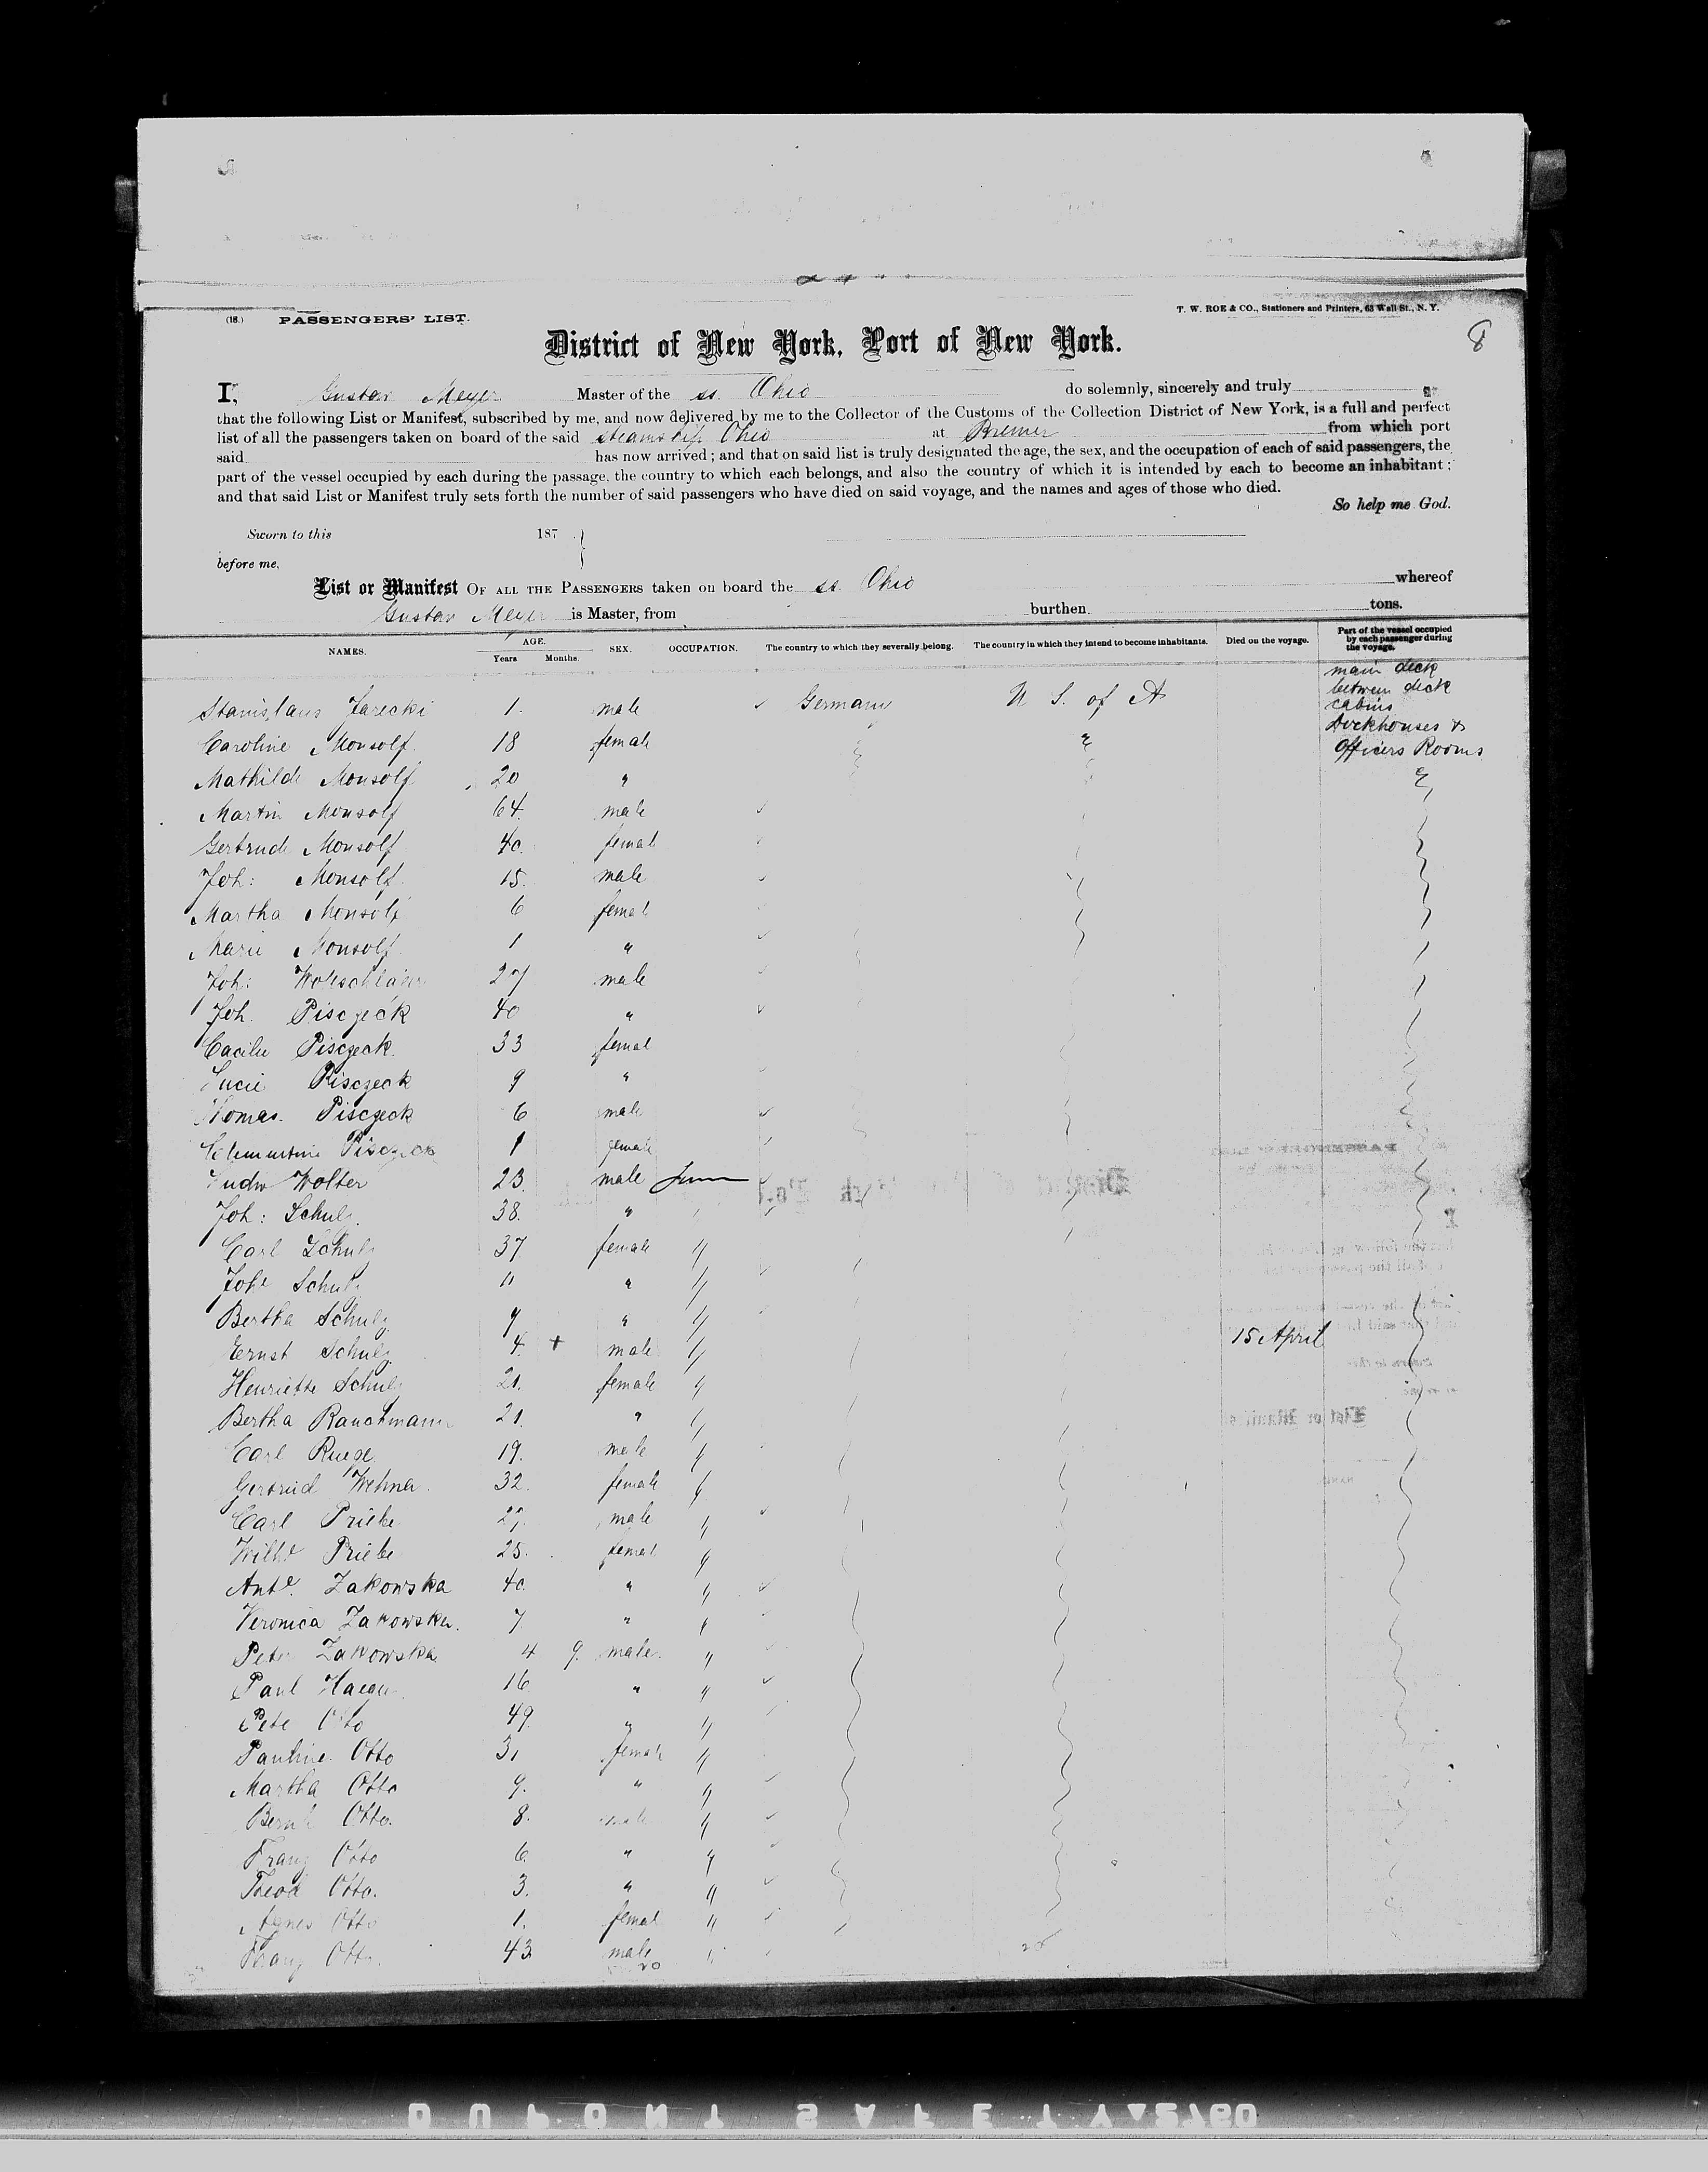 (18.) PASSENGERS' LIST.
T. W. ROE & CO., Stationers and Printers, 63 Wall St., N. Y.
8
District of New York, Port of New York.
I, Gustav Meyer Master of the ss. Ohio do solemnly, sincerely and truly
that the following List or Manifest, subscribed by me, and now delivered by me to the Collector of the Customs of the Collection District of New York, is a full and perfect
list of all the passengers taken on board of the said steamship Ohio at Bremen from which port
said has now arrived; and that on said list is truly designated the age, the sex, and the occupation of each of said passengers, the
part of the vessel occupied by each during the passage, the country to which each belongs, and also the country of which it is intended by each to become an inhabitant;
and that said List or Manifest truly sets forth the number of said passengers who have died on said voyage, and the names and ages of those who died.
So help me God.
Sworn to this 187 }
before me,
List or Manifest OF ALL THE PASSENGERS taken on board the ss. Ohio whereof
Gustav Meyer is Master, from burthen tons.
NAMES. AGE. Years Months. SEX. OCCUPATION. The country to which they severally belong. The country in which they intend to become inhabitants. Died on the voyage. Part of the vessel occupied by each passenger during the voyage.
main deck
between deck
cabins
Deckhouses &
Officers Rooms
Stanislaus Jarecki 1. male Germany U S. of A
Caroline Monsolf. 18 female
Mathilde Monsolf 20 "
Martin Monsolf 64. male
Gertrude Monsolf 40. female
Joh: Monsolf. 15. male
Martha Monsolf 6 female
Marie Monsolf. 1 "
Joh: 27 male
Joh. Pisczeck 40 "
Cacilie Pisczeck. 33 female
Lucie Pisczeck 9 "
Thomas. Pisczeck 6 male
Clementine Pisczeck 1 female
Ludw Wolter 23. male
Joh: Schulz. 38. "
Carl Schulz 37 female "
Joh Schulz 11 " "
Bertha Schulz 9 " "
Ernst Schulz 4. + male " 15 April
Henriette Schulz 21. female "
Bertha 21. " "
Carl Ruege. 19. male "
Gertrud Wehner. 32. female "
Carl Priebe 27. male "
Wilh Priebe 25. female "
Ant. Zakowska 40. " "
Veronica Zakowska. 7. " "
Peter Zakowska 4 9. male. "
Paul 16 " "
Pete Otto 49. " "
Pauline Otto 31 female "
Martha Otto 9. " "
Bernh Otto. 8. male "
Franz Otto 6. " "
Theod Otto. 3. " "
Agnes Otto 1. female "
Franz Otto. 43 male "
20
DUPONT SAFETY 2760